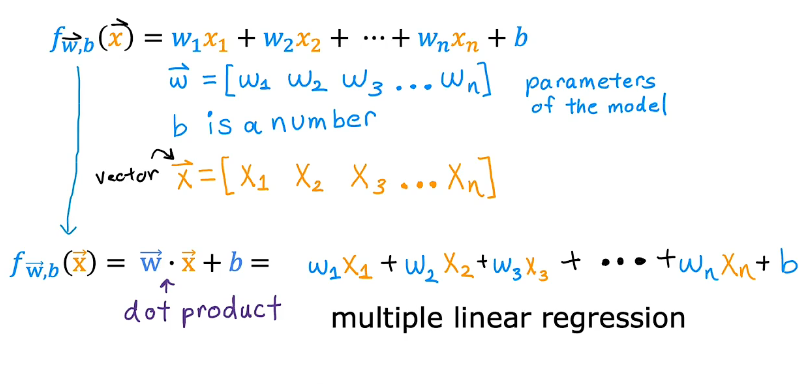 f w⃗,b(x⃗) = w₁x₁ + w₂x₂ + ⋯ + wₙxₙ + b
w⃗ = [w₁ w₂ w₃ ... wₙ] parameters
of the model
b is a number
vector x⃗ = [x₁ x₂ x₃ ... xₙ]
f w⃗,b(x⃗) = w⃗ · x⃗ + b = w₁x₁ + w₂x₂ + w₃x₃ + ⋯ + wₙxₙ + b
dot product
multiple linear regression